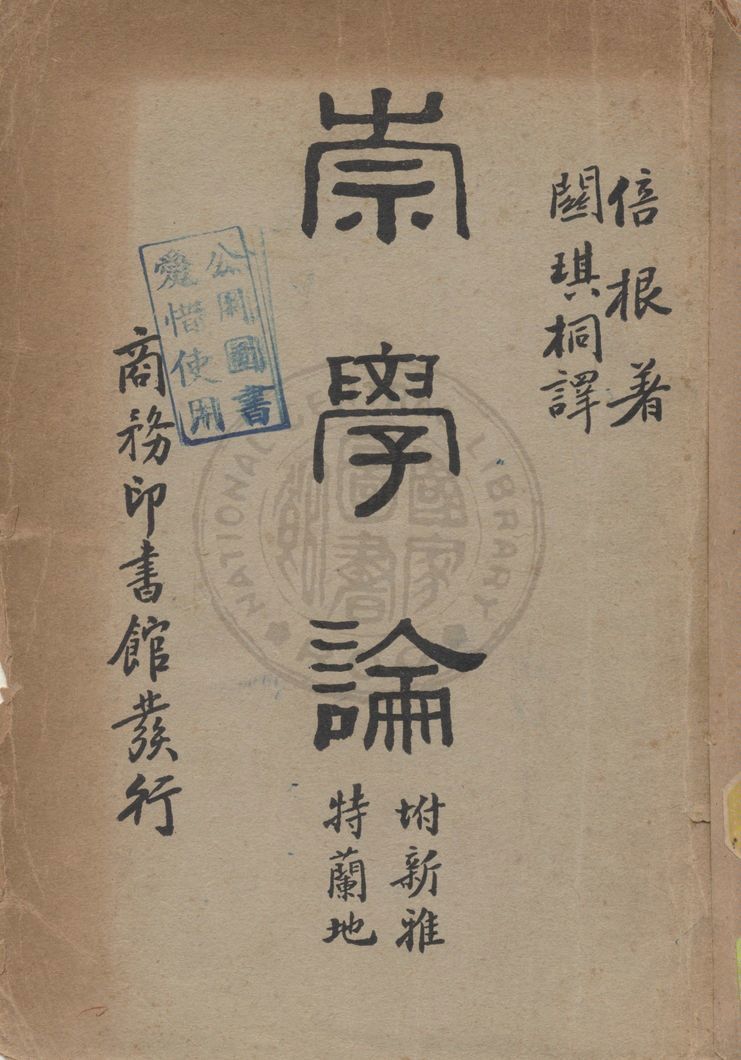 倍根著
關琪桐譯
崇學論
坿新雅
特蘭地
公用圖書
愛惜使用
商務印書館發行
NATIONAL
LIBRARY
國家
圖書